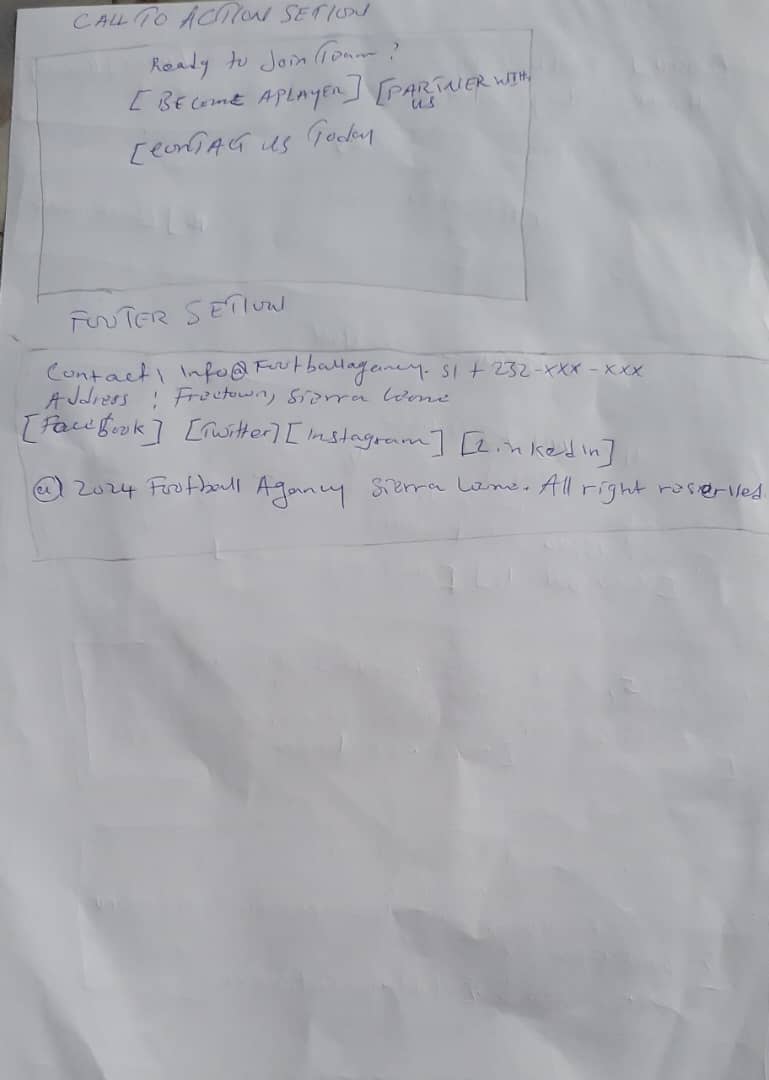 CALL TO ACTION SETION
Ready to Join Team?
[BECOME A PLAYER] [PARTNER WITH
US
[CONTACT US Today
FOOTER SETION
Contact: Info@Footballagency.sl +232-XXX-XXX
Address: Freetown, Sierra Leone
[FaceBook] [Twitter] [Instagram] [Linkedin]
@ 2024 Football Agency Sierra Leone. All right reserved.